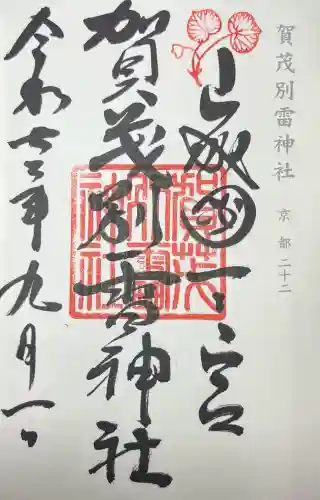 賀茂別雷神社 京都 二十二
山城國一之宮
賀茂別雷神社
令和七年九月一日
賀茂
別雷
神社